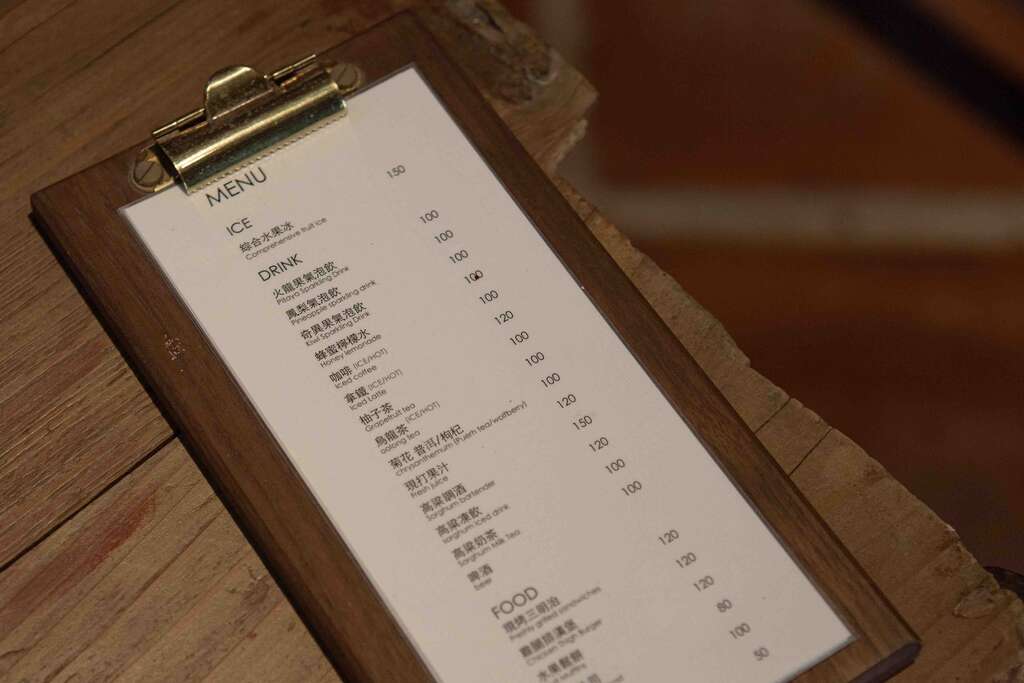 MENU
ICE
綜合水果冰 150
Comprehensive fruit ice
DRINK
火龍果氣泡飲 100
Pitaya Sparkling Drink
鳳梨氣泡飲 100
Pineapple sparkling drink
奇異果氣泡飲 100
Kiwi Sparkling Drink
蜂蜜檸檬水 100
Honey lemonade
咖啡 (ICE/HOT) 100
Iced coffee
拿鐵 (ICE/HOT) 120
Iced Latte
柚子茶 100
Grapefruit tea
烏龍茶 (ICE/HOT) 100
oolong tea
菊花 普洱/枸杞 100
chrysanthemum (Puerh tea/wolfberry)
現打果汁 120
fresh juice
高粱調酒 150
Sorghum bartender
高粱凍飲 120
sorghum iced drink
高粱奶茶 100
Sorghum Milk Tea
啤酒 100
beer
FOOD
現烤三明治 120
Freshly grilled sandwiches
腿排漢堡 120
Chicken thigh Burger
水果鬆餅 120
80
100
50